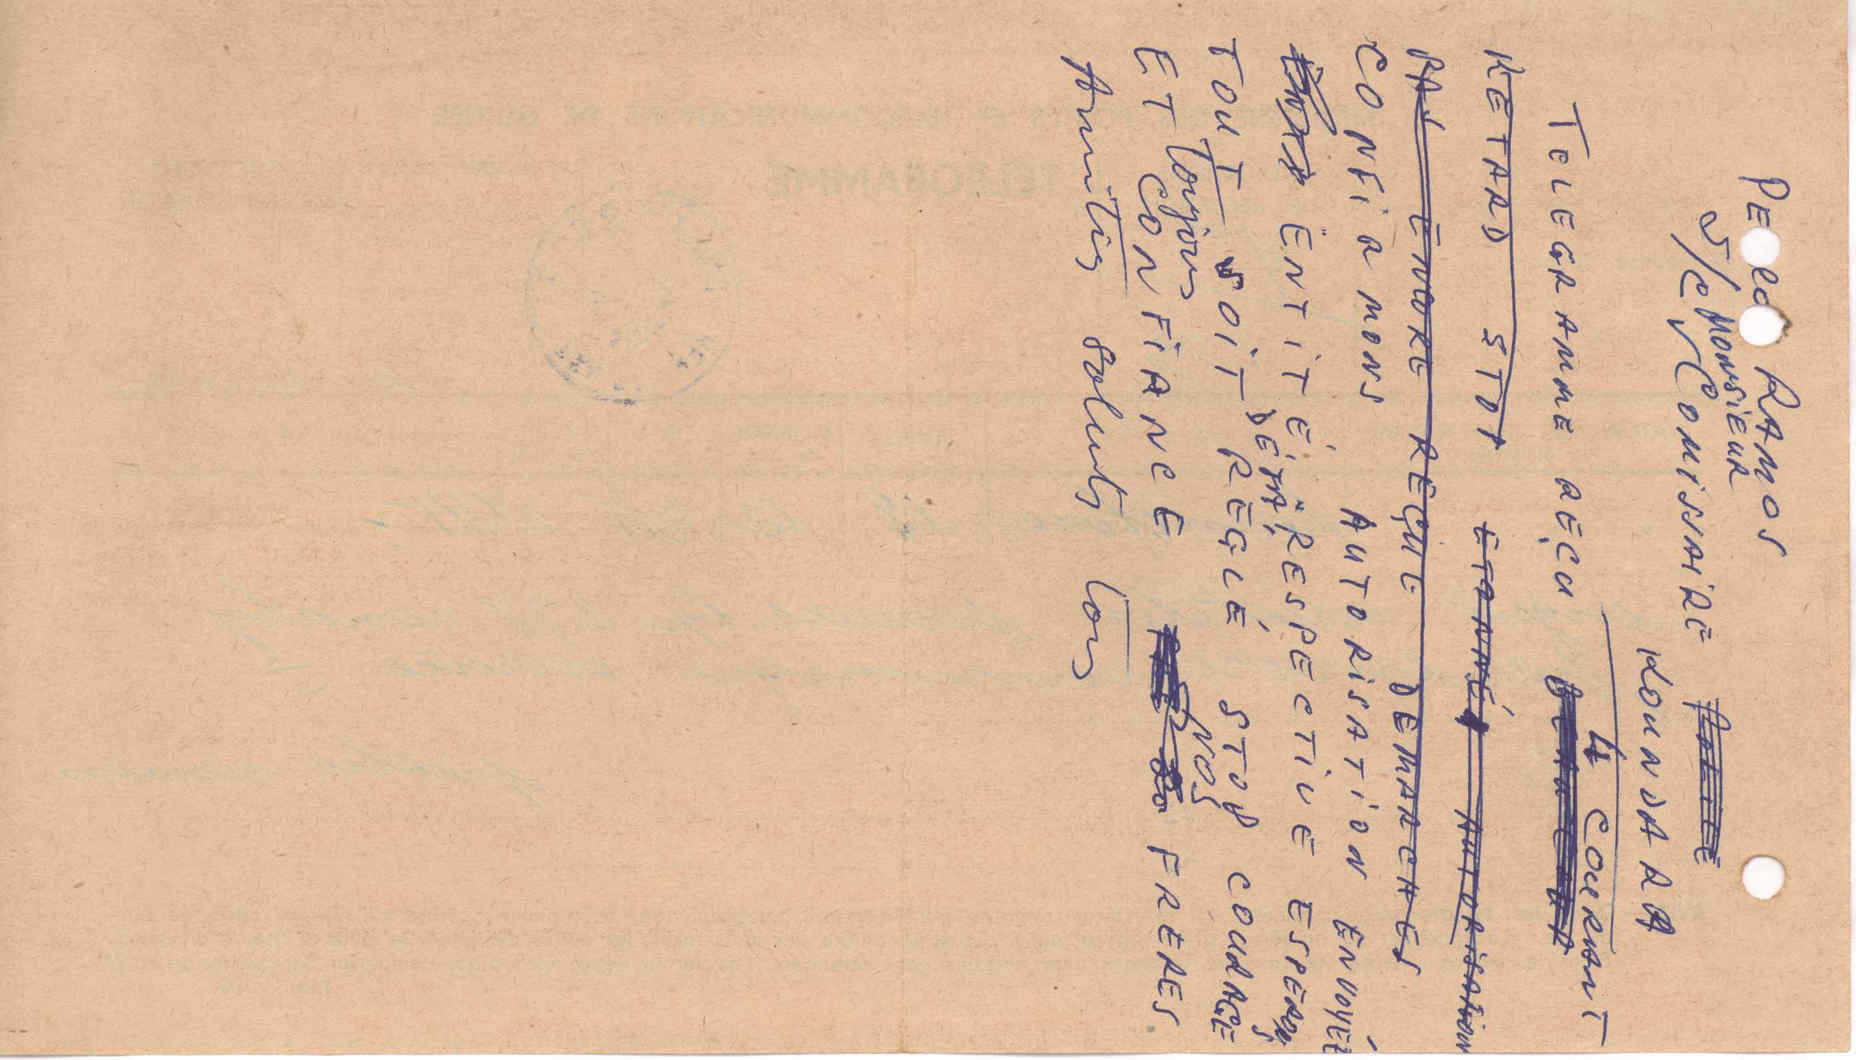 PEDRO RAMOS
S/C MONSIEUR
COMISSAIRE
KOUNDARA
TELEGRAMME REÇU 4 COURANT
RETARD STOP ETONNÉ AUTORISATION
PAS ENCORE REÇUE DEMARCHES
CONFIRMONS AUTORISATION ENVOYÉE
ENTITÉ RESPECTIVE ESPERONS
DÉJÀ
TOUT SOIT RÉGLÉ STOP COURAGE
Toujours NOS
ET CONFIANCE FRERES
Amitiés saluts tous